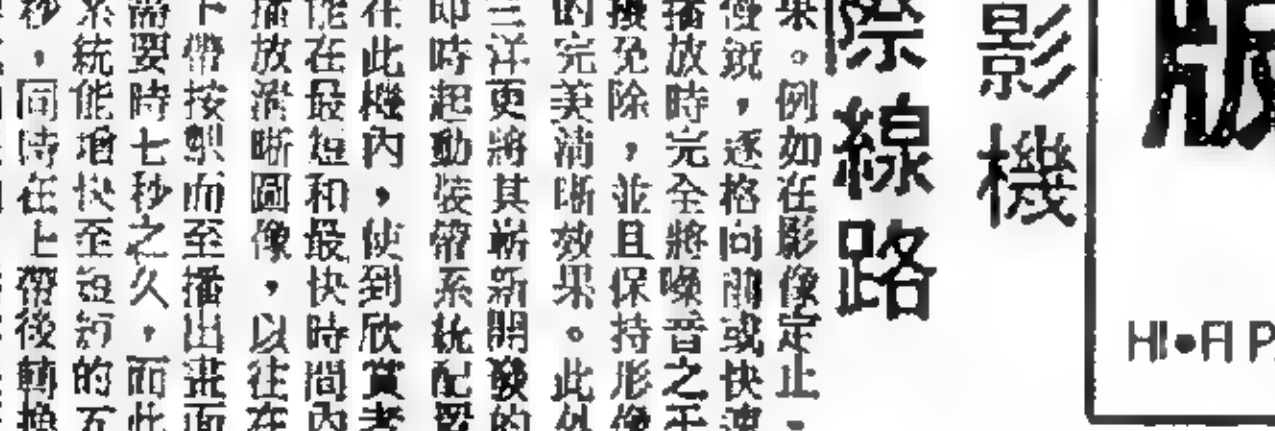 版
HI•FI P
影機
際線路
果。例如在影像定止，
慢鏡，逐格向前或快速
播放時完全將噪音之干
擾免除，並且保持形像
的完美清晰效果。此外
三洋更將其嶄新開發的
即時起動裝帶系統配置
在此機內，使到欣賞者
能在最短和最快時間內
播放清晰圖像，以往在
下帶按掣而至播出畫面
需要時七秒之久，而此
系統能增快至短短的五
秒，同時在上帶後轉換